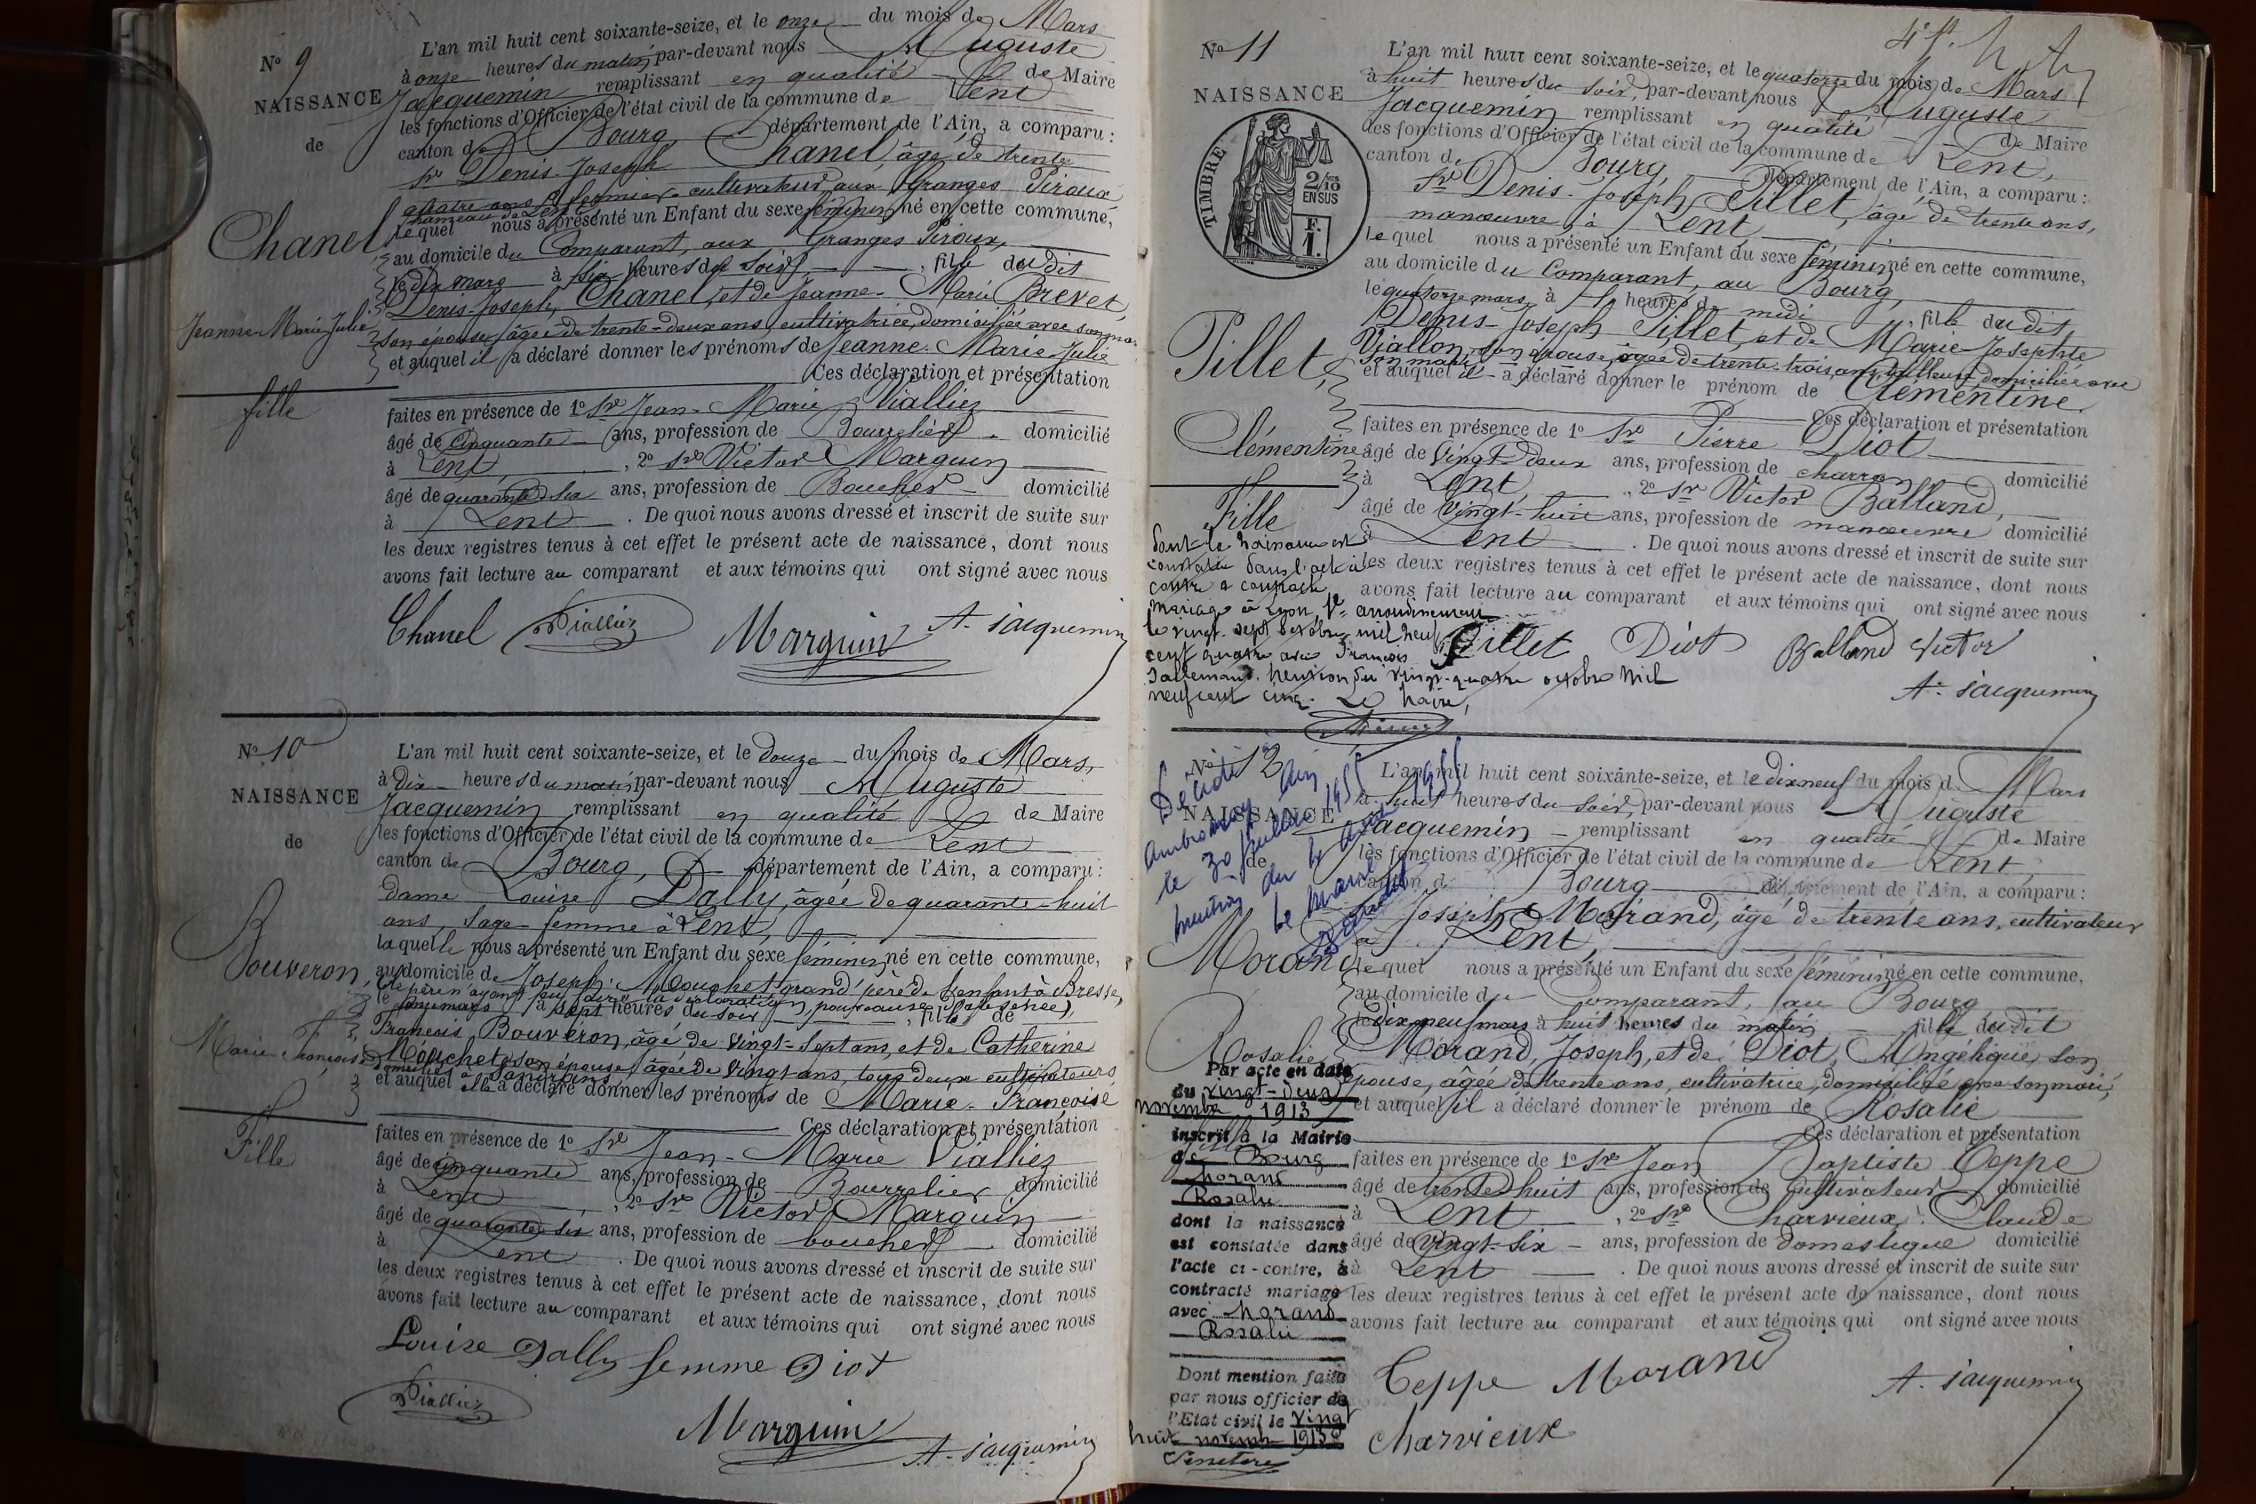 N° 9
NAISSANCE
de
Chanel
Jeanne-Marie-Julie
fille
L'an mil huit cent soixante-seize, et le onze du mois de Mars
à onze heures du matin par-devant nous Auguste
Jacquemin remplissant en qualité de Maire
les fonctions d'Officier de l'état civil de la commune de Lent
canton de Bourg département de l'Ain, a comparu :
Sr Denis-Joseph Chanel, âgé de trente
quatre ans, fermier cultivateur aux Granges Piroux
hameau de Lent
lequel nous a présenté un Enfant du sexe féminin né en cette commune,
au domicile du Comparant, aux Granges Piroux,
le dix mars à six heures du soir, fille dudit
Denis-Joseph, Chanel, et de Jeanne-Marie Brevet,
son épouse, âgée de trente-deux ans, cultivatrice, domiciliée avec son mari
et auquel il a déclaré donner les prénoms de Jeanne-Marie-Julie
Ces déclaration et présentation
faites en présence de 1° Sr Jean-Marie Vialliez
âgé de cinquante ans, profession de Bourrelier domicilié
à Lent, 2° Sr Victor Marguin
âgé de quarante six ans, profession de Boucher domicilié
à Lent. De quoi nous avons dressé et inscrit de suite sur
les deux registres tenus à cet effet le présent acte de naissance, dont nous
avons fait lecture au comparant et aux témoins qui ont signé avec nous
Chanel Vialliez Marguin A. Jacquemin
N° 10
NAISSANCE
de
Bouveron,
Marie-Françoise
Fille
L'an mil huit cent soixante-seize, et le douze du mois de Mars,
à dix heures du matin par-devant nous Auguste
Jacquemin remplissant en qualité de Maire
les fonctions d'Officier de l'état civil de la commune de Lent
canton de Bourg, département de l'Ain, a comparu :
dame Louise Dally, âgée de quarante-huit
ans, sage-femme à Lent,
laquelle nous a présenté un Enfant du sexe féminin né en cette commune,
au domicile de Joseph Mouchet grand'père de l'enfant à Bresse,
(le père n'ayant pu faire la déclaration, pour cause d'absence),
le onze mars à sept heures du soir, fille de
François Bouveron, âgé de vingt-sept ans, et de Catherine
Mouchet, son épouse, âgée de vingt ans, tous deux cultivateurs
domiciliés à Dandrans
et auquel elle a déclaré donner les prénoms de Marie-Françoise
Ces déclaration et présentation
faites en présence de 1° Sr Jean-Marie Vialliez
âgé de cinquante ans, profession de Bourrelier domicilié
à Lent, 2° Sr Victor Marguin
âgé de quarante six ans, profession de boucher domicilié
à Lent. De quoi nous avons dressé et inscrit de suite sur
les deux registres tenus à cet effet le présent acte de naissance, dont nous
avons fait lecture au comparant et aux témoins qui ont signé avec nous
Louise Dally femme Diot
Vialliez
Marguin A. Jacquemin
N° 11
NAISSANCE
TIMBRE
2/10
EN SUS
F.
1.
Pillet,
Clémentine
Fille
dont la naissance est
constatée dans l'acte ci-
contre a contracté
mariage à Lyon, 1er arrondissement
le vingt-sept octobre mil neuf
cent quatre avec François
Lallemand. Mention du vingt-quatre octobre mil
neuf cent cinq. Le Maire,
L'an mil huit cent soixante-seize, et le quatorze du mois de Mars
à huit heures du soir, par-devant nous Auguste
Jacquemin remplissant en qualité de Maire
les fonctions d'Officier de l'état civil de la commune de Lent,
canton de Bourg, département de l'Ain, a comparu :
Sr Denis-Joseph Pillet, âgé de trente ans,
manœuvre à Lent
lequel nous a présenté un Enfant du sexe féminin né en cette commune,
au domicile du Comparant, au Bourg,
le quatorze mars, à heures de midi, fille dudit
Denis-Joseph Pillet, et de Marie-Josephte
Viallon, son épouse, âgée de trente-trois ans, tailleuse, domiciliée avec
son mari,
et auquel il a déclaré donner le prénom de Clémentine.
Ces déclaration et présentation
faites en présence de 1° Sr Pierre Diot
âgé de vingt-deux ans, profession de charron domicilié
à Lent, 2° Sr Victor Balland,
âgé de vingt-huit ans, profession de manœuvre domicilié
à Lent. De quoi nous avons dressé et inscrit de suite sur
les deux registres tenus à cet effet le présent acte de naissance, dont nous
avons fait lecture au comparant et aux témoins qui ont signé avec nous
Pillet Diot Balland Victor
A. Jacquemin
N° 12
NAISSANCE
de
Décédée à
Ambronay Ain
le 30 juillet 1955
mention du 4 août 1955
Le Maire
Morand
Rosalie
Par acte en date
du vingt-deux
novembre 1913
inscrit à la Mairie
de Bourg
Morand
Rosalie
dont la naissance
est constatée dans
l'acte ci-contre, a
contracté mariage
avec Morand
Rosalie
Dont mention faite
par nous officier de
l'Etat civil le vingt
huit novembre 1913
L'an mil huit cent soixante-seize, et le dix neuf du mois de Mars
à huit heures du soir, par-devant nous Auguste
Jacquemin remplissant en qualité de Maire
les fonctions d'Officier de l'état civil de la commune de Lent,
canton de Bourg département de l'Ain, a comparu :
Joseph Morand, âgé de trente ans, cultivateur
à Lent,
lequel nous a présenté un Enfant du sexe féminin né en cette commune,
au domicile du Comparant, au Bourg
le dix neuf mars à huit heures du matin fille dudit
Morand, Joseph, et de Diot, Angélique, son
épouse, âgée de trente ans, cultivatrice, domiciliée avec son mari,
et auquel il a déclaré donner le prénom de Rosalie
Ces déclaration et présentation
faites en présence de 1° Sr Jean Baptiste Teppe
âgé de trente huit ans, profession de cultivateur domicilié
à Lent, 2° Sr Charvieux, Claude
âgé de vingt-six ans, profession de domestique domicilié
à Lent. De quoi nous avons dressé et inscrit de suite sur
les deux registres tenus à cet effet le présent acte de naissance, dont nous
avons fait lecture au comparant et aux témoins qui ont signé avec nous
Teppe Morand A. Jacquemin
Charvieux